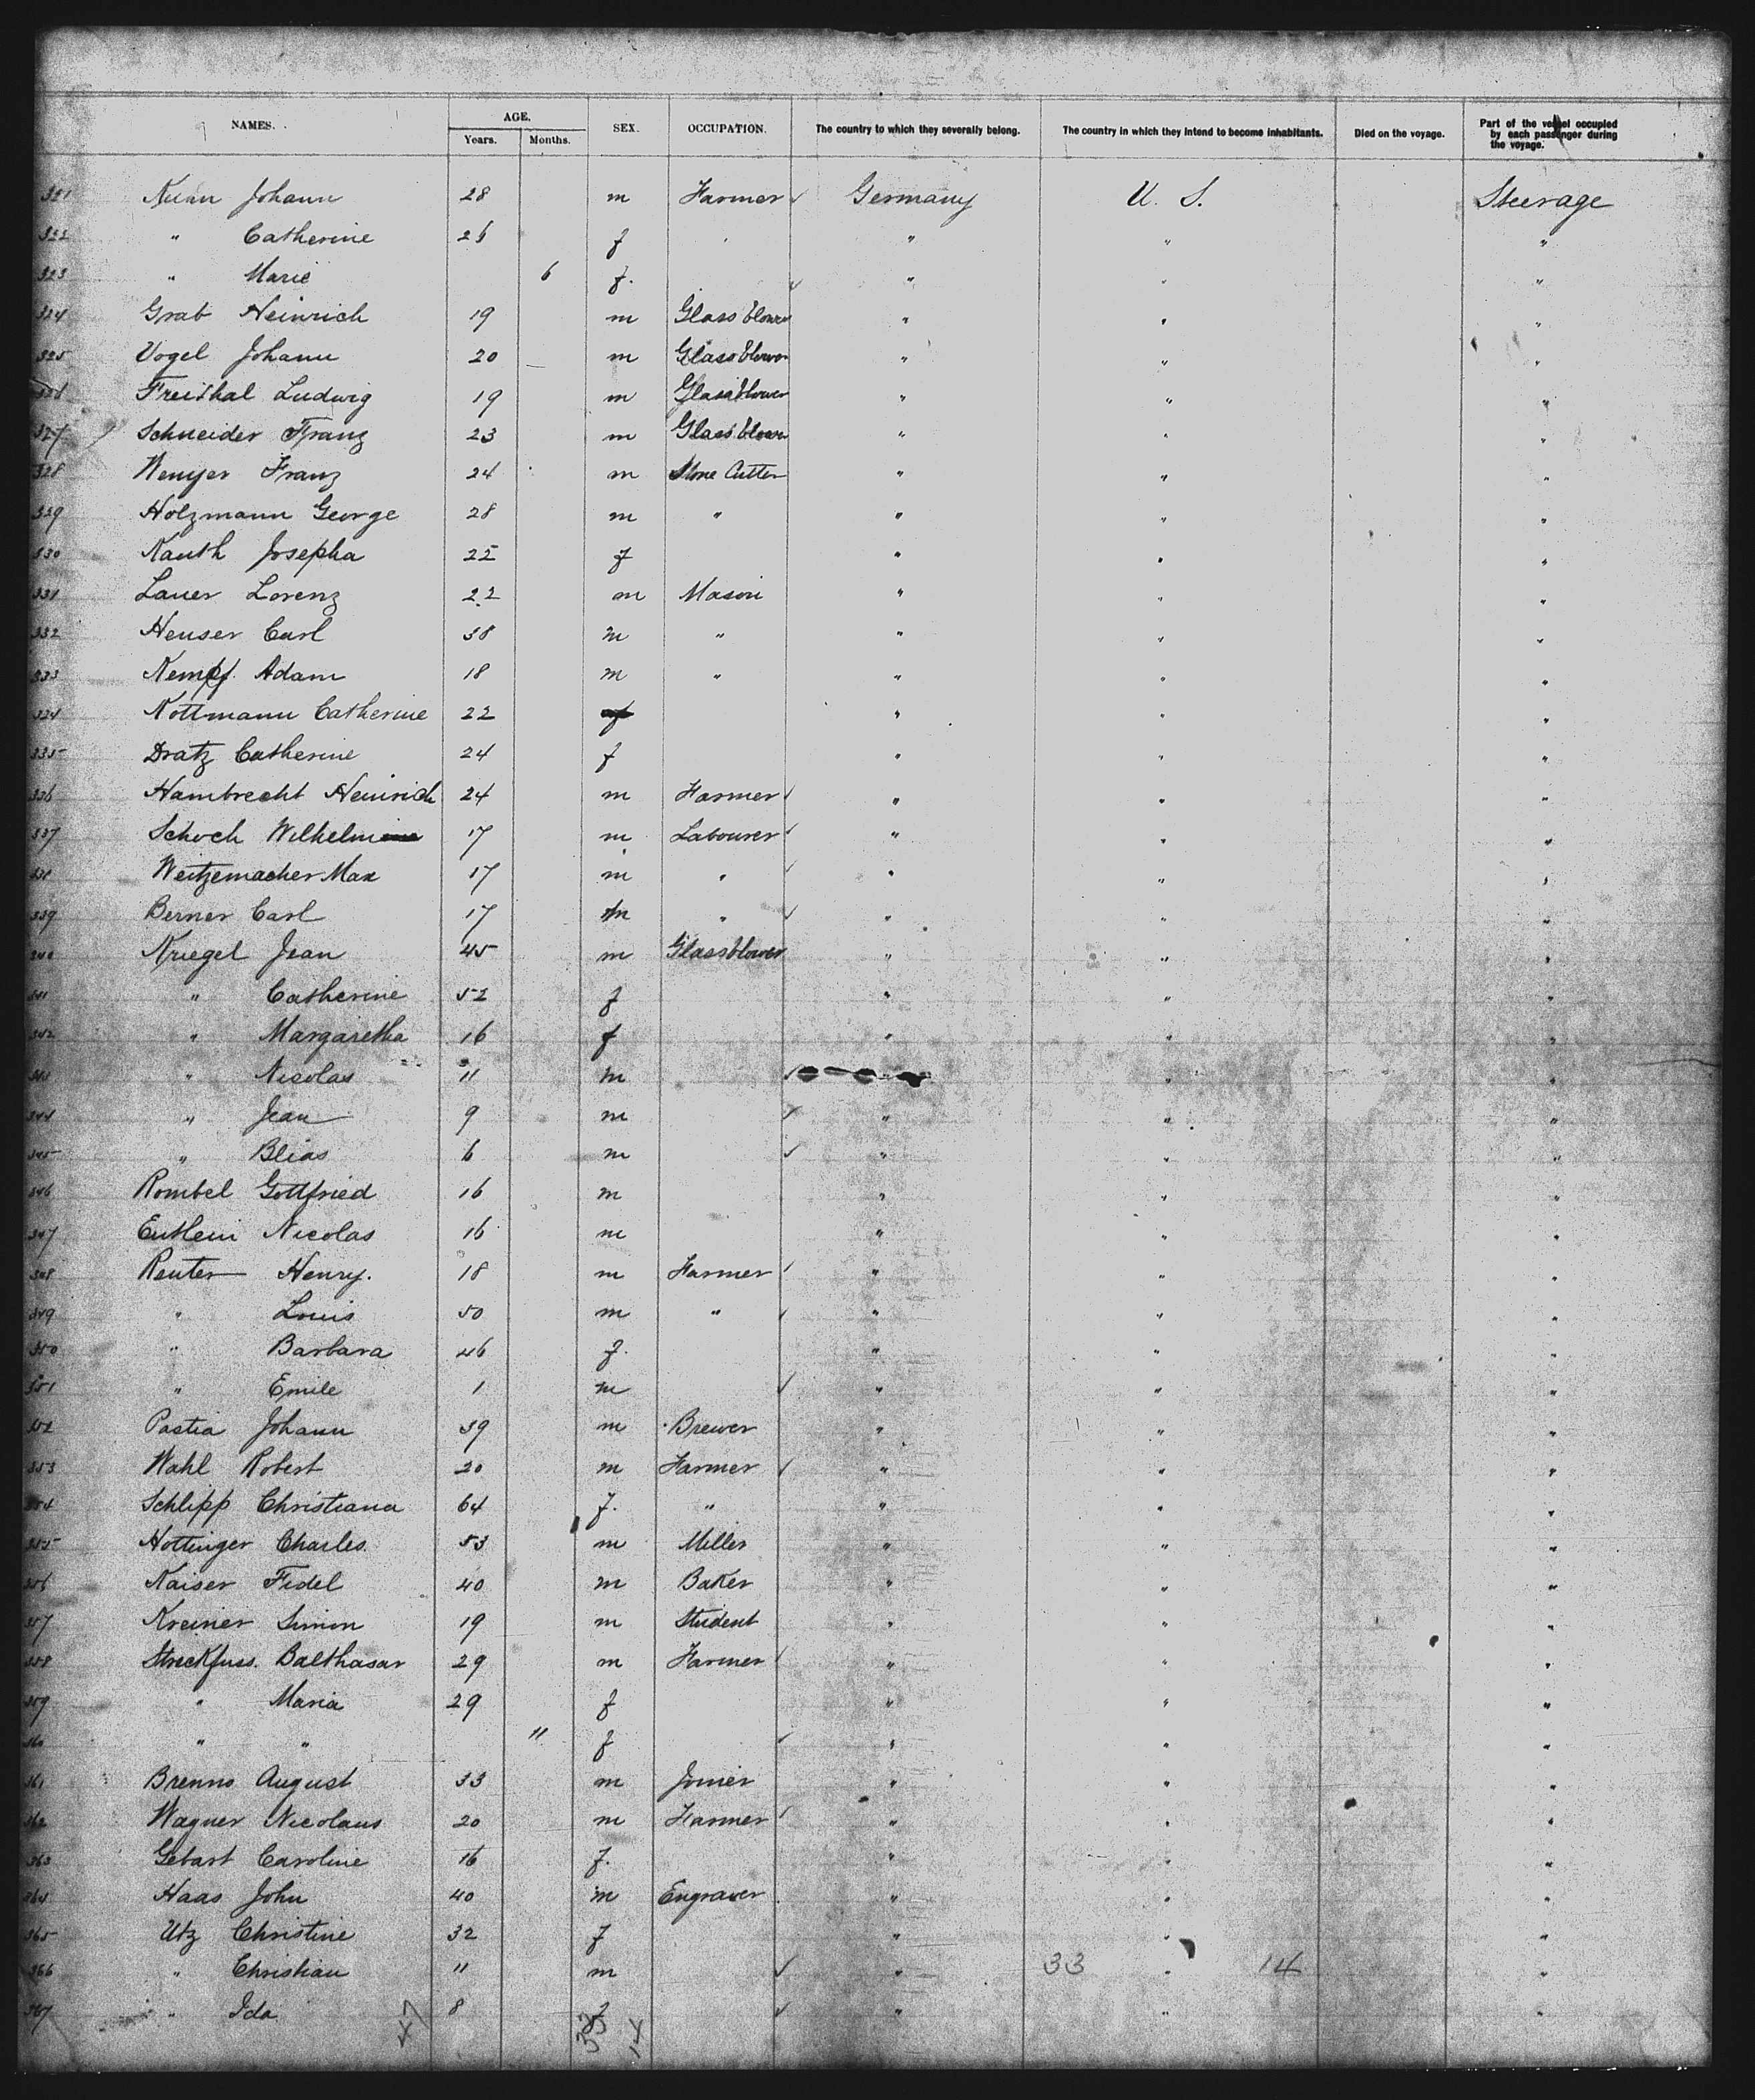 NAMES. AGE. SEX. OCCUPATION. The country to which they severally belong. The country in which they intend to become inhabitants. Died on the voyage. Part of the vessel occupied by each passenger during the voyage.
Years. Months.
321 Kuhn Johann 28 m Farmer Germany U. S. Steerage
322 " Catherine 26 f " " "
323 " Marie 6 f. " " "
324 Grab Heinrich 19 m Glass blower " " "
325 Vogel Johann 20 m Glassblower " " "
326 Freithal Ludwig 19 m Glassblower " " "
327 Schneider Franz 23 m Glass blower " " "
328 Wenger Franz 24 m Stone Cutter " " "
329 Holzmann George 28 m " " " "
330 Kauth Josepha 22 f " " "
331 Lauer Lorenz 22 m Mason " " "
332 Heuser Carl 38 m " " " "
333 Kempf Adam 18 m " " " "
334 Kottmann Catherine 22 f " " "
335 Dratz Catherine 24 f " " "
336 Hambrecht Heinrich 24 m Farmer " " "
337 Schoch Wilhelm 17 m Labourer " " "
338 Weitzemacher Max 17 m " " " "
339 Berner Carl 17 m " " " "
340 Kriegel Jean 45 m Glassblower " " "
341 " Catherine 52 f " " "
342 " Margaretha 16 f " " "
343 " Nicolas 11 m " " "
344 " Jean 9 m " " "
345 " Blias 6 m " " "
346 Rombel Gottfried 16 m " " "
347 Nicolas 16 m " " "
348 Reuter Henry. 18 m Farmer " " "
349 " Louis 50 m " " " "
350 " Barbara 46 f. " " "
351 " Emile 1 m " " "
352 Pastia Johann 39 m Brewer " " "
353 Wahl Robert 20 m Farmer " " "
354 Schlipp Christiana 64 f. " " " "
355 Hottinger Charles. 53 m Miller " " "
356 Kaiser Fidel 40 m Baker " " "
357 Kreiner Simon 19 m Student " " "
358 Streckfuss. Balthasar 29 m Farmer " " "
359 " Maria 29 f " " "
360 " " 11 f " " "
361 Brenno August 33 m Joiner " " "
362 Wagner Nicolaus 20 m Farmer " " "
363 Gebart Caroline 16 f. " " "
364 Haas John 40 m Engraver " " "
365 Utz Christine 32 f " " "
366 " Christian 11 m " 33 " 14 "
367 " Ida 8 f " " "
47 33 14